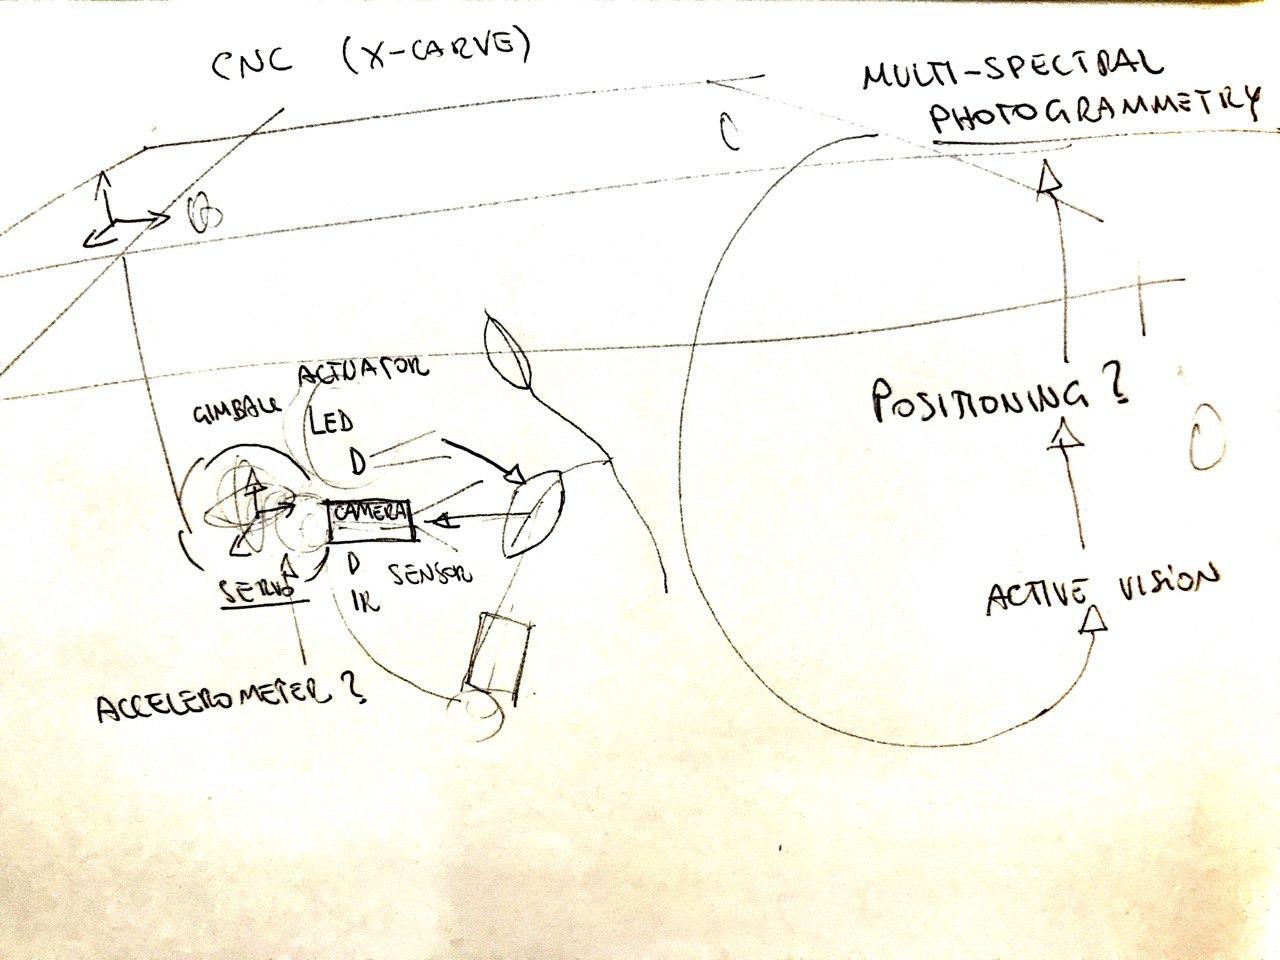 CNC (X-CARVE)
MULTI-SPECTRAL
PHOTOGRAMMETRY
ACTUATOR
GIMBALL
LED
CAMERA
SENSOR
IR
SERVO
ACCELEROMETER?
POSITIONING?
ACTIVE VISION